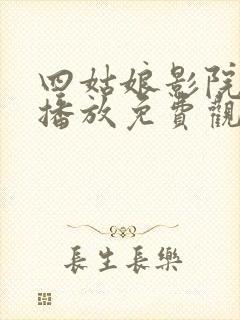 四姑娘影院
播放免費觀
長生長樂